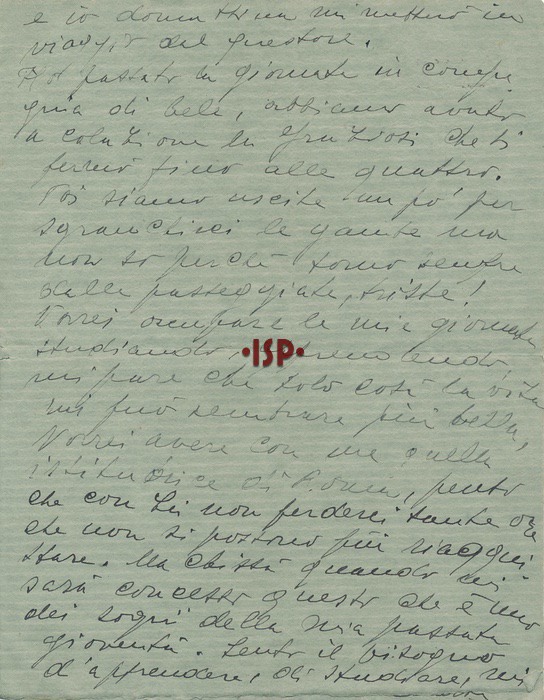 e io domattina mi metterò in
viaggio del questore.
Ho passato la giornata in compa
gnia di bele, abbiamo avuto
a colazione la Graziosi che si
fermò fino alle quattro.
Poi siamo uscite un po' per
sgranchirci le gambe ma
non so perchè torno sempre
dalle passeggiate, triste!
Vorrei occupare le mie giornate
studiando,
•ISP•
mi pare che solo così la vita
mi può sembrare più bella,
Vorrei avere con me quella
istitutrice di Roma, penso
che con Lei non perderei tante ore
che non si possono più riacqui
stare. Ma chissà quando mi
sarà concesso questo che è uno
dei sogni della mia passata
gioventù. Sento il bisogno
d'apprendere, di studiare, mi